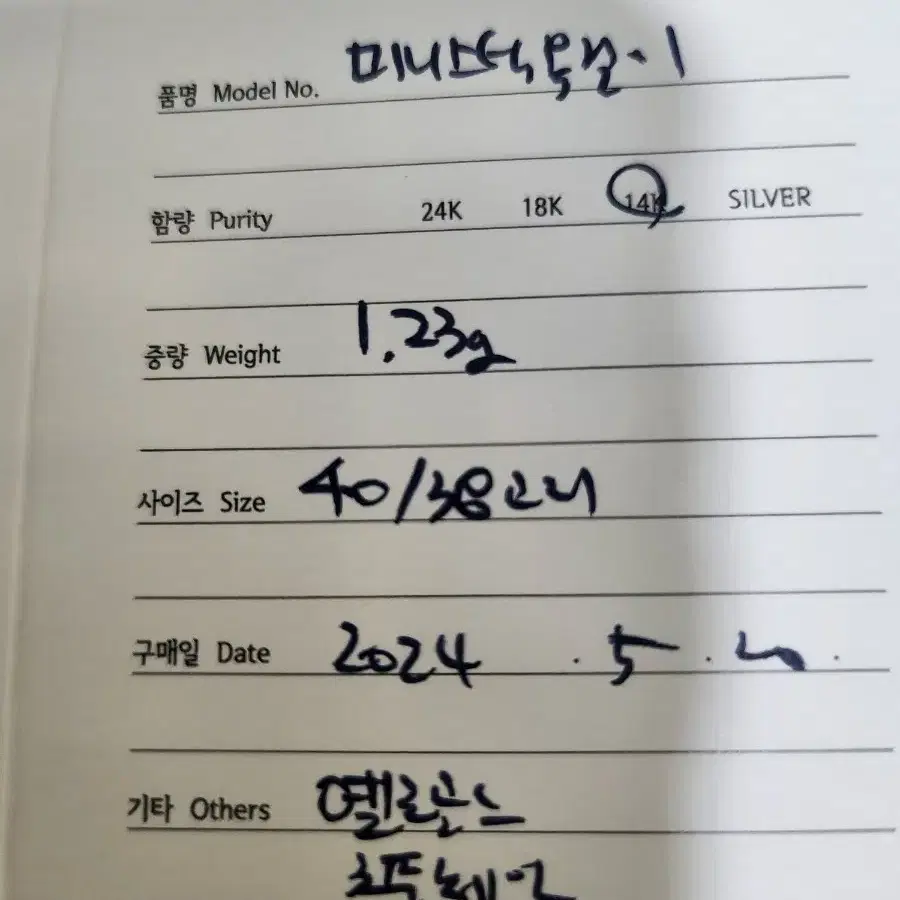 품명 Model No. 미니스틱목걸-1
함량 Purity 24K 18K 14K SILVER
중량 Weight 1.23g
사이즈 Size 40/38고리
구매일 Date 2024 . 5 . 20 .
기타 Others 옐로골드